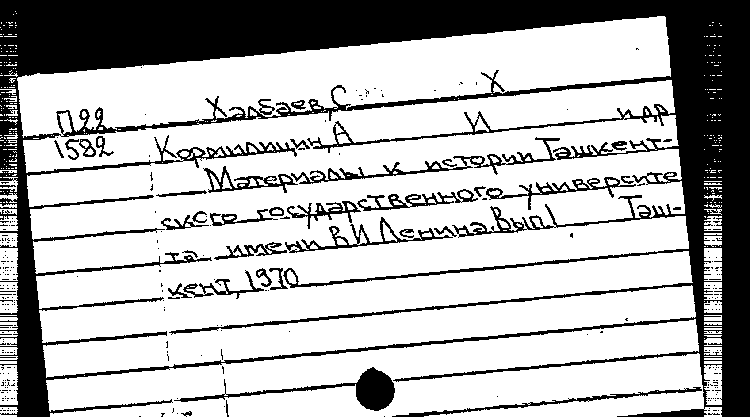 П22 Халбаев, С Х
1582 Кормилицин, А И и др
Материалы к истории Ташкент-
ского государственного университе
та имени В И Ленина. Вып 1 Таш-
кент, 1970